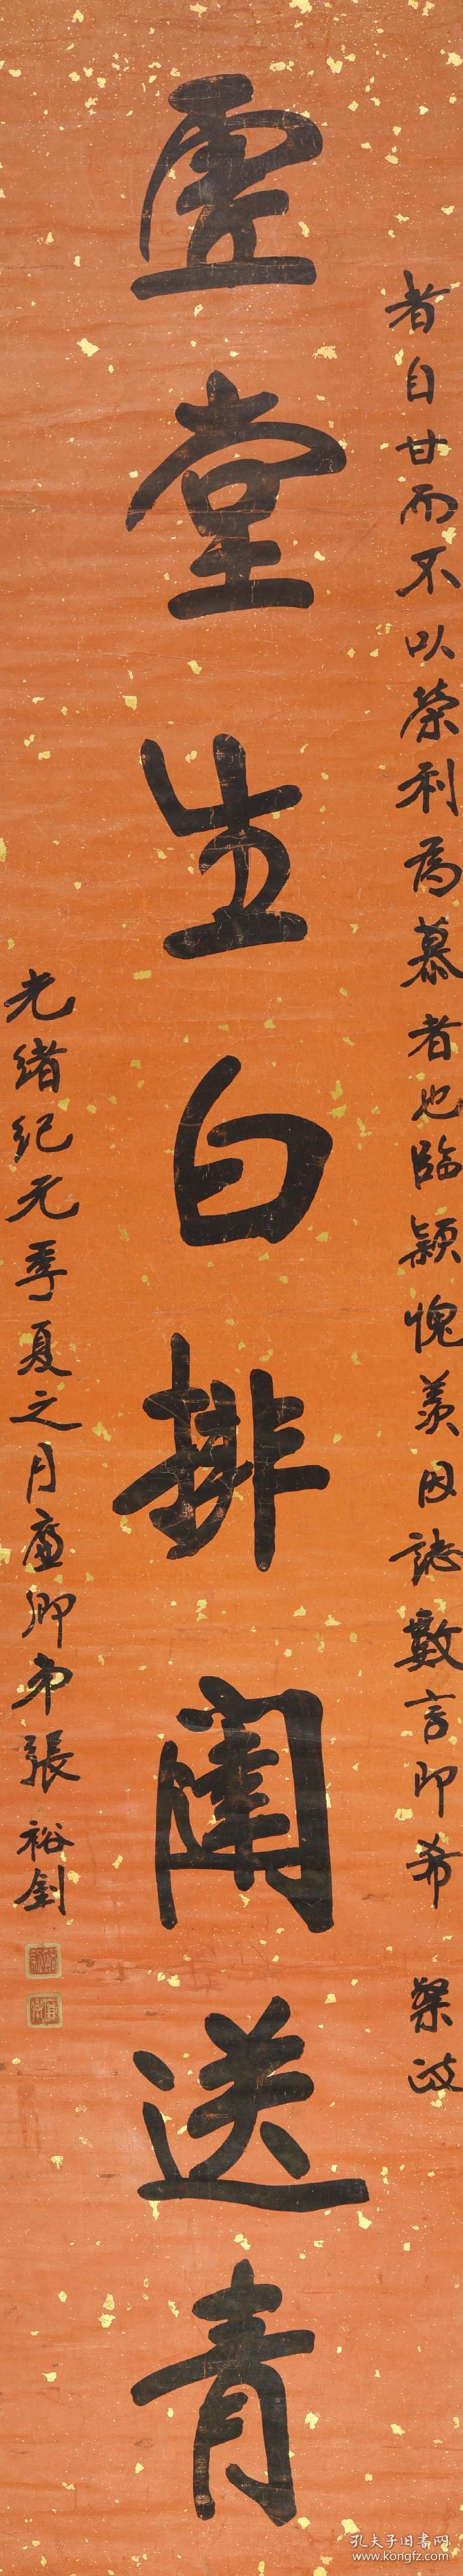 者自甘而不以榮利為慕者也臨穎愧羨因誌數言即希
槼政
虛堂生白排闥送青
光緒紀元季夏之月廉卿弟張裕釗
孔夫子旧书网
www.kongfz.com